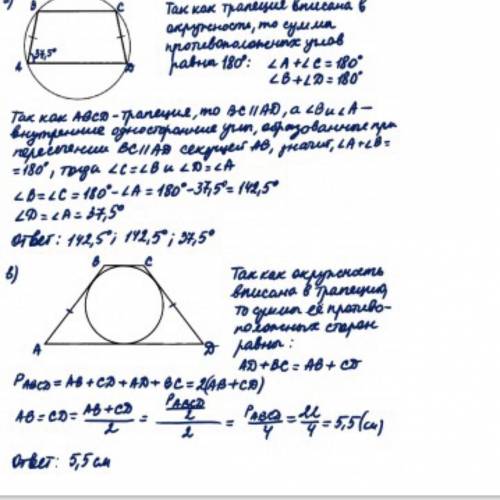 B C
A 37,5° D
Так как трапеция вписана в
окружность, то сумма
противоположных углов
равна 180°: ∠A+∠C=180°
∠B+∠D=180°
Так как ABCD-трапеция, то BC∥AD, а ∠B и ∠A—
внутренние односторонние углы, образованные при
пересечении BC∥AD секущей AB, значит, ∠A+∠B=
=180°, тогда ∠C=∠B и ∠D=∠A
∠B=∠C=180°-∠A=180°-37,5°=142,5°
∠D=∠A=37,5°
Ответ: 142,5°; 142,5°; 37,5°
в)
B C
A D
Так как окружность
вписана в трапецию,
то суммы её противо-
положных сторон
равны:
AD+BC=AB+CD
P_ABCD=AB+CD+AD+BC=2(AB+CD)
AB=CD=(AB+CD)/2=(P_ABCD/2)/2=P_ABCD/4=22/4=5,5(см)
Ответ: 5,5см